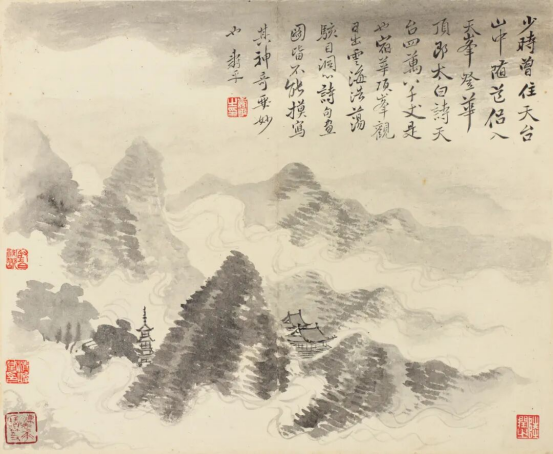 少時曾住天台
山中隨道侶入
天峯登華
頂即太白詩天
台四萬八千丈是
也宿華頂峯觀
日出雲海浩蕩
駭目洞心詩句畫
圖皆不能摸寫
其神奇要妙
也 壽平